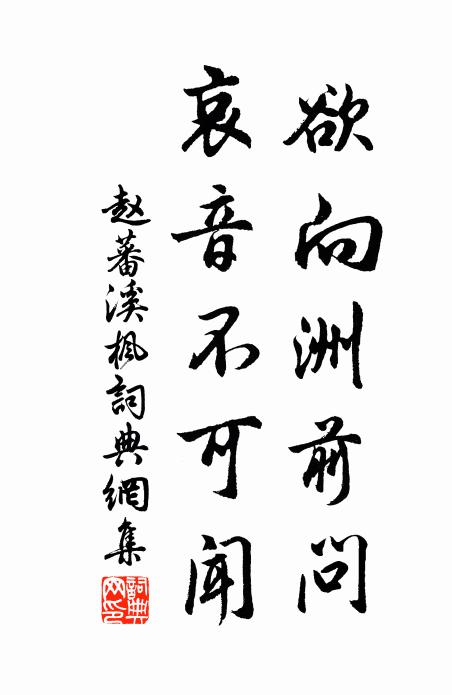 欲向洲前問
哀音不可聞
赵蕃溪楓詞典網集
詞典網印